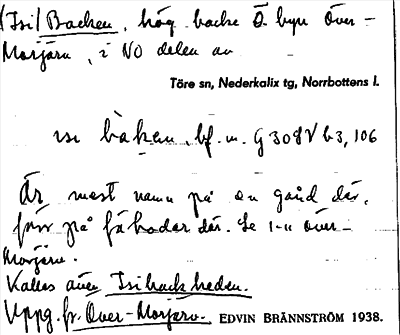 (Isi) Backen, hög backe Ö. byn Över-
Morjärv, i NO delen av
Töre sn, Nederkalix tg, Norrbottens l.
ɩsɩ bàken, bf. m. G 308 V b3, 106
Är mest namn på en gård där,
förr på fäbodar där. Se 1-u över-
Morjärv.
Kallas även Isibackheden.
Uppg. fr. Över-Morjärv. EDVIN BRÄNNSTRÖM 1938.